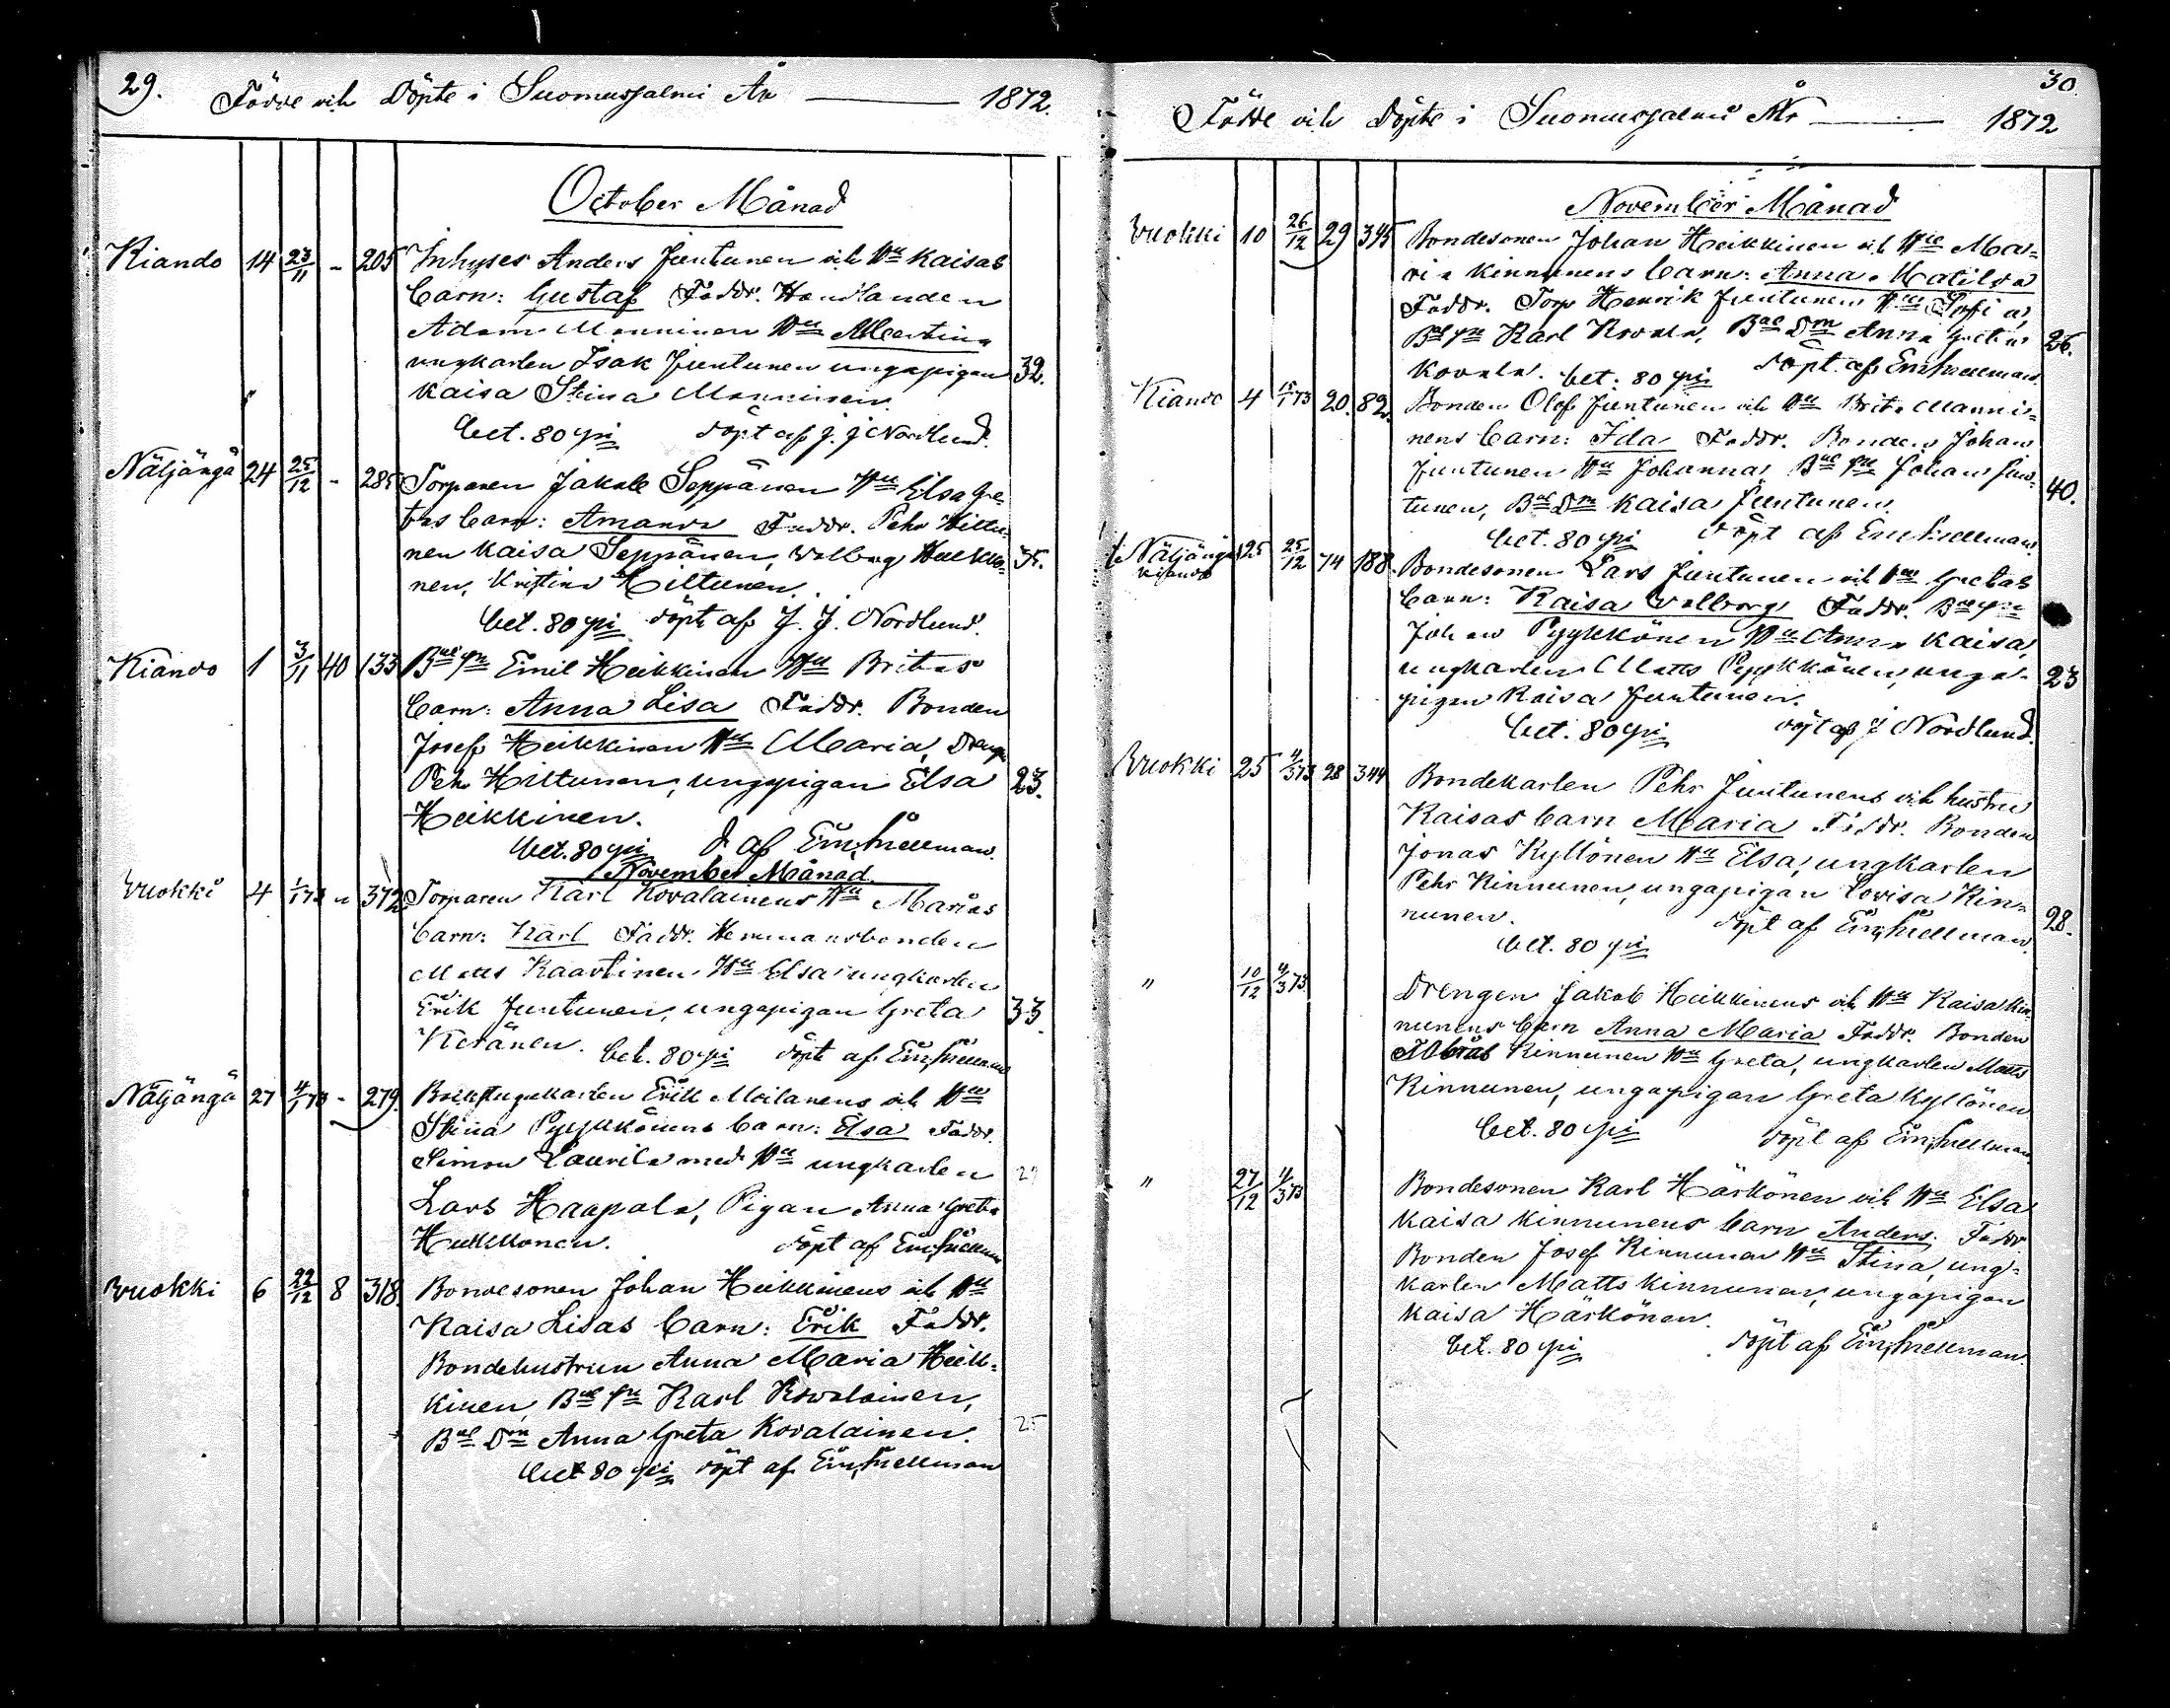 29. Födde och Döpte i Suomusjalmi År 1872.
October Månad
Kiando 14 23/11 - 205 Inhyses Anders Juntunen och Hu Kaisas
barn: Gustaf Faddr. Handlanden
Adam Manninen Hu Albertina
ungkarlen Isak Juntunen ungapigan 32.
Kaisa Stina Manninen.
bet. 80 pi döpt af J. J Nordlund.
Näljängä 24 25/12 - 285 Torparen Jakob Seppänen Hu Elsa Gre
tas barn: Amanda Faddr. Pehr Hiltu
nen Kaisa Seppänen, Valborg Hulkko
nen, Kristina Hiltunen.
bet. 80 pi döpt af J. J. Nordlund.
Kiando 1 3/11 40 133 Heikkinen Hu Britas
barn: Anna Lisa Faddr. Bonden
Josef Heikkinen Hu Maria, Dreng
Pehr Hiltunen, ungpigan Elsa 23.
Heikkinen.
bet. 80 pi d af Em, Snellman.
November Månad
Vuokki 4 1/1 73 " 372 Torparen Karl Kovalainens Hu Marias
barn: Karl Faddr. Hemmansbonden
Matts Kaartinen Hu Elsa ungkarlen
Erik Juntunen, ungapigan Greta 33.
Keränen. bet. 80 pi döpt af Em, Snellman
Näljängä 27 4/1 73 - 279. Backstugukarlen Erik Moilanens och Hu
Stina Pyykkönens barn: Elsa Faddr.
Simon Laurila med Hu ungkarlen 29
Lars Haapala, Pigan Anna Greta
Hulkkonen. döpt af Em, Snellman
Vuokki 6 22/12 8 318. Bondesonen Johan Heikkinens och Hu
Kaisa Lisas barn: Erik Faddr.
Bondehustrun Anna Maria Heik-
kinen, Karl Kovalainen,
Anna Greta Kovalainen. 25
bet 80 pi döpt af Em, Snellman
30.
Födde och Döpte i Suomusjalmi År 1872
November Månad
Vuokki 10 26/12 29 345 Bondesonen Johan Heikkinen och Hu Ma-
ria Kinnunens barn: Anna Matilda
Faddr. Torp Henrik Juntunen Hu Sofia,
Karl Kovala, Anna Greta 26.
Kovala. bet: 80 pi döpt af Em Snellman
Kiando 4 15/1 73 20. 82. Bonden Olof Juntunen och Hu Brita Manni-
nens barn: Ida Faddr. Bonden Johan
Juntunen Hu Johanna, Johan Jun-
tunen, Kaisa Juntunen. 40.
bet. 80 pi döpt af Em Snellman
Näljängä 25 25/12 74 188. Bondesonen Lars Juntunen och Hu Gretas
Kiando barn: Kaisa Valborg Faddr.
Johan Pyykkönen Hu Anna Kaisa,
ungkarlen Matts Pyykkönen, unga- 23
pigan Kaisa Juntunen.
bet. 80 pi döpt af J Nordlund.
Vuokki 25 4/3 73 28 344 Bondekarlen Pehr Juntunens och hustru
Kaisas barn Maria Faddr. Bonden
Jonas Kyllönen Hu Elsa, ungkarlen
Pehr Kinnunen, ungapigan Lovisa Kin-
nunen. döpt af Em, Snellman 28.
bet. 80 pi
" 10/12 4/3 73 Drengen Jakob Heikkinens och Hu Kaisa Kin-
nunens barn Anna Maria Faddr. Bonden
Kinnunen Hu Greta, ungkarlen Matts
Kinnunen, ungapigan Greta Kyllönen
bet. 80 pi döpt af Em, Snellman
" 27/12 4/3 73 Bondesonen Karl Härkönen och Hu Elsa
Kaisa Kinnunens barn Anders. Faddr
Bonden Josef Kinnunen Hu Stina, ung-
karlen Matts Kinnunen, ungapigan
Kaisa Härkönen.
bet. 80 pi döpt af Em, Snellman.